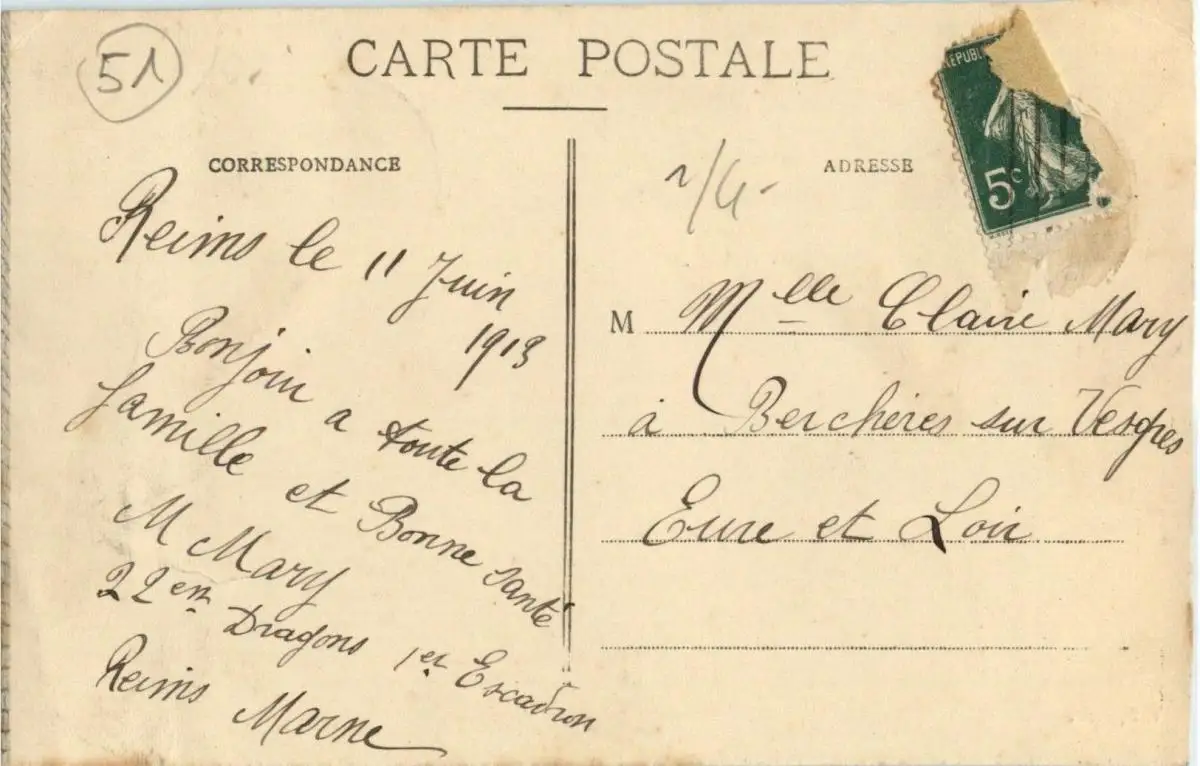 51
CARTE POSTALE
RÉPUBL
5c
CORRESPONDANCE
Reims le 11 Juin
1913
Bonjour a toute la
famille et Bonne santé
M Mary
22em Dragons 1er Escadron
Reims Marne
ADRESSE
M Mlle Claire Mary
à Berchères sur Vesgres
Eure et Loir